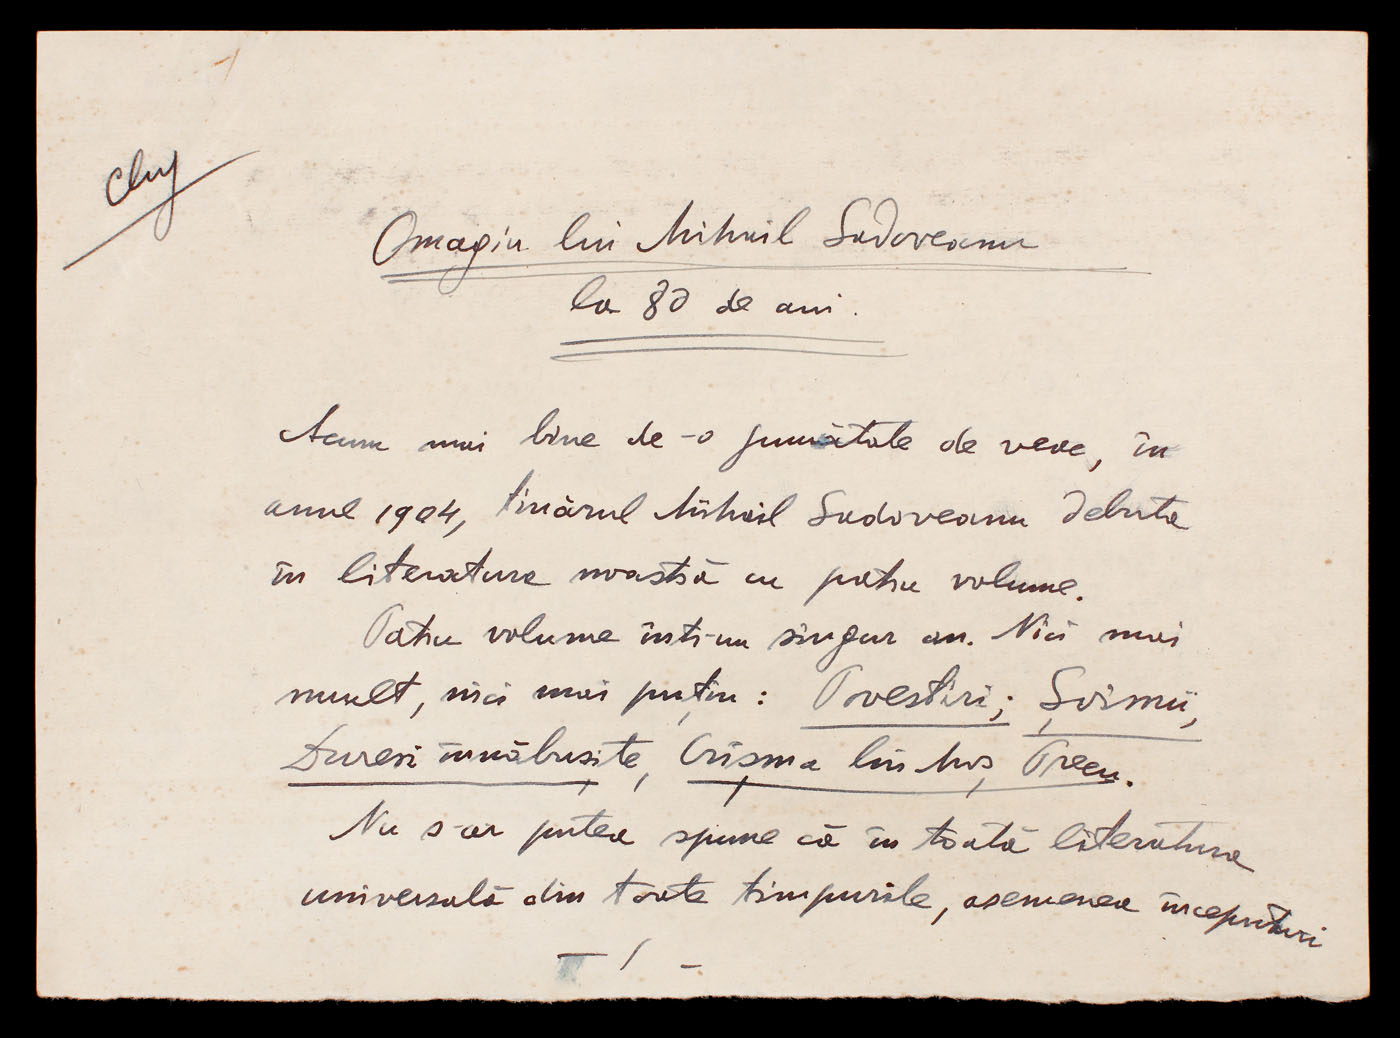 Cluj
Omagiu lui Mihail Sadoveanu
la 80 de ani.
Acum mai bine de-o jumătate de veac, în
anul 1904, tînărul Mihail Sadoveanu debuta
în literatura noastră cu patru volume.
Patru volume într-un singur an. Nici mai
mult, nici mai puțin: Povestiri; Șoimii,
Dureri înnăbușite, Crîșma lui Moș Precu.
Nu s-ar putea spune că în toată literatura
universală din toate timpurile, asemenea începuturi
- 1 -